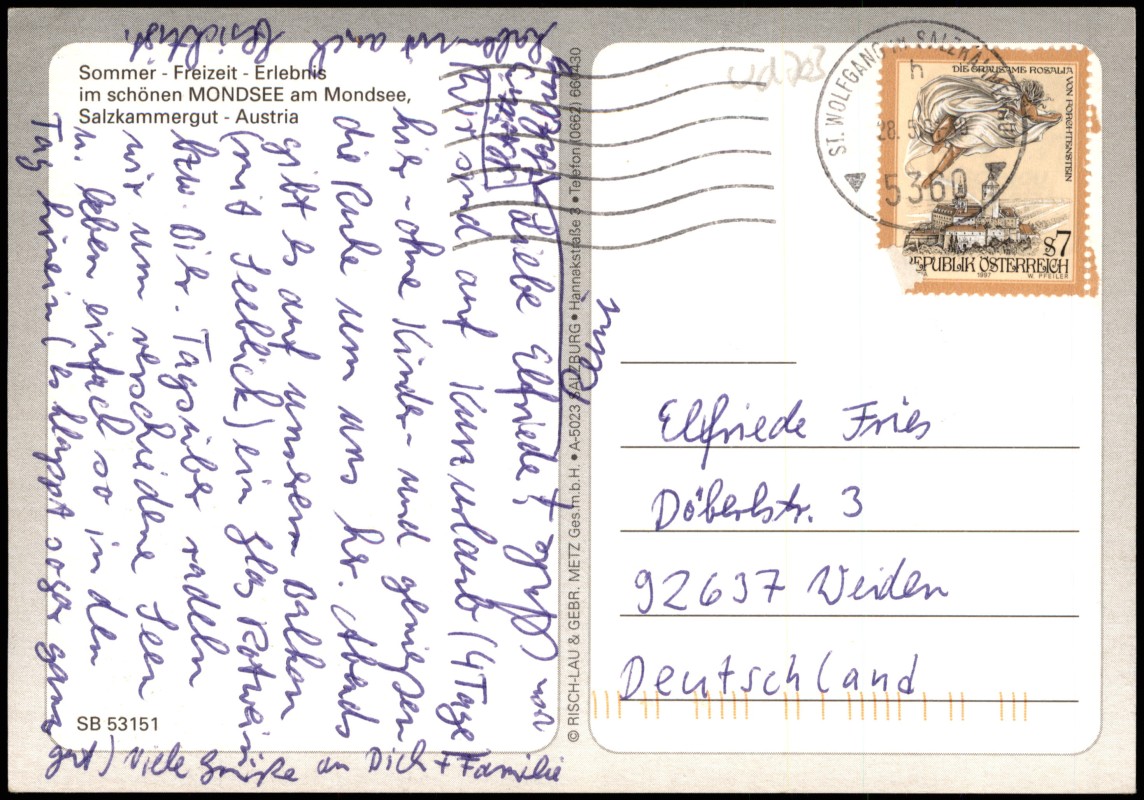 Sommer - Freizeit - Erlebnis
im schönen MONDSEE am Mondsee,
Salzkammergut - Austria
Liebe Elfriede!
Wir sind auf Kurzurlaub (4 Tage)
hier - ohne Kinder - und genießen
die Ruhe um uns her. Abends
gibt es auf unserem Balkon
(mit Seeblick) ein Glas Rotwein
bzw. Bier. Tagsüber radeln
wir um verschiedene Seen
u. leben einfach so in den
Tag hinein (es klappt sogar ganz
gut) Viele Grüße an Dich + Familie
haben wir auch
besichtigt.
SB 53151
© RISCH-LAU & GEBR. METZ Ges.m.b.H. • A-5023 SALZBURG • Hannakstraße 3 • Telefon (0662) 660430
ST. WOLFGANG IM SALZKAMMERGUT
28. 5.
5360
DIE GRAUSAME ROSALIA
VON FORCHTENSTEIN
S7
REPUBLIK ÖSTERREICH
1997
W. PFEILER
Elfriede Fries
Döberlstr. 3
92637 Weiden
Deutschland